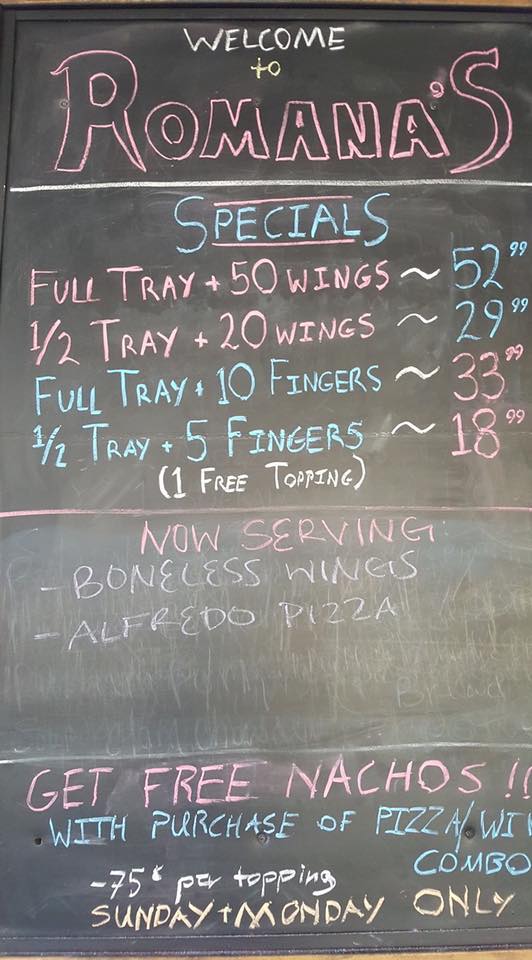 WELCOME
to
ROMANA'S
SPECIALS
FULL TRAY + 50 WINGS ~ 52⁹⁹
1/2 TRAY + 20 WINGS ~ 29⁹⁹
FULL TRAY + 10 FINGERS ~ 33⁹⁹
1/2 TRAY + 5 FINGERS ~ 18⁹⁹
(1 FREE TOPPING)
NOW SERVING:
- BONELESS WINGS
- ALFREDO PIZZA
Bread
GET FREE NACHOS !!
WITH PURCHASE OF PIZZA/WI
COMBO
-75¢ per topping
SUNDAY + MONDAY ONLY